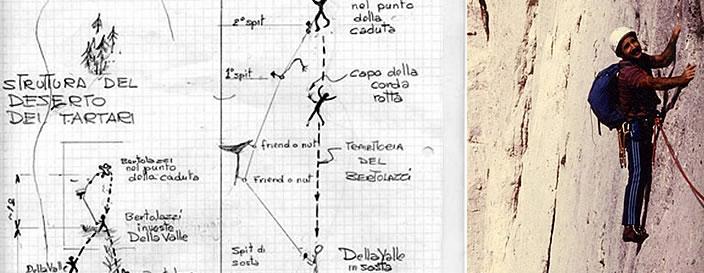 STRUTTURA DEL
DESERTO
DEI TARTARI
Bertolazzi
nel punto
della caduta
Bertolazzi
investe
DellaValle
DellaValle
2° spit
nel punto
della
caduta
1° spit
capo della
corda
rotta
friend o nut
Friend o nut
DEL
BERTOLAZZI
Spit di
sosta
DellaValle
in sosta